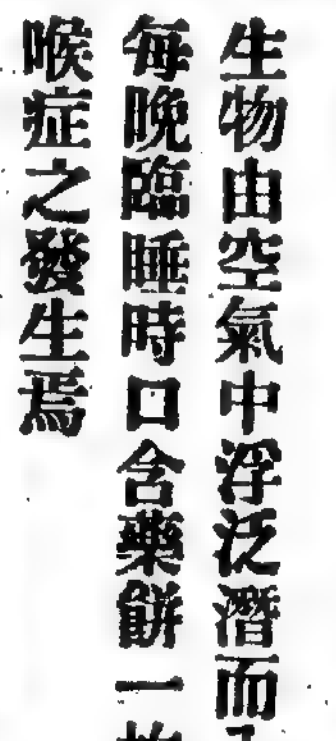 生物由空氣中浮泛潛而
每晚臨睡時口含藥餅一
喉症之發生焉